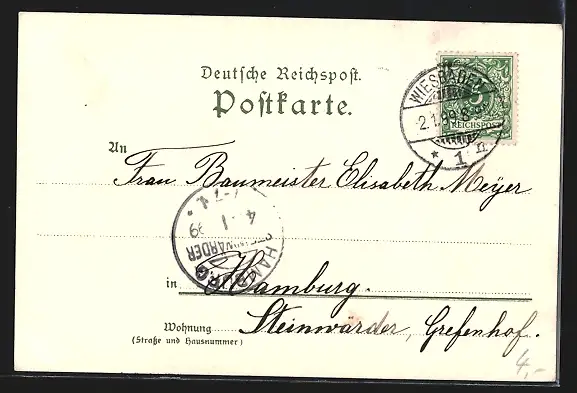 Deutsche Reichspost.
Postkarte.
WIESBADEN
2.1.99.8-9N.
* 1 n
5
REICHSPOST
An
Frau Baumeister Elisabeth Meyer
4-1
99
STEINWÄRDER
HAMBURG
in Hamburg.
Wohnung Steinwärder, Grefenhof.
(Straße und Hausnummer)
4,-